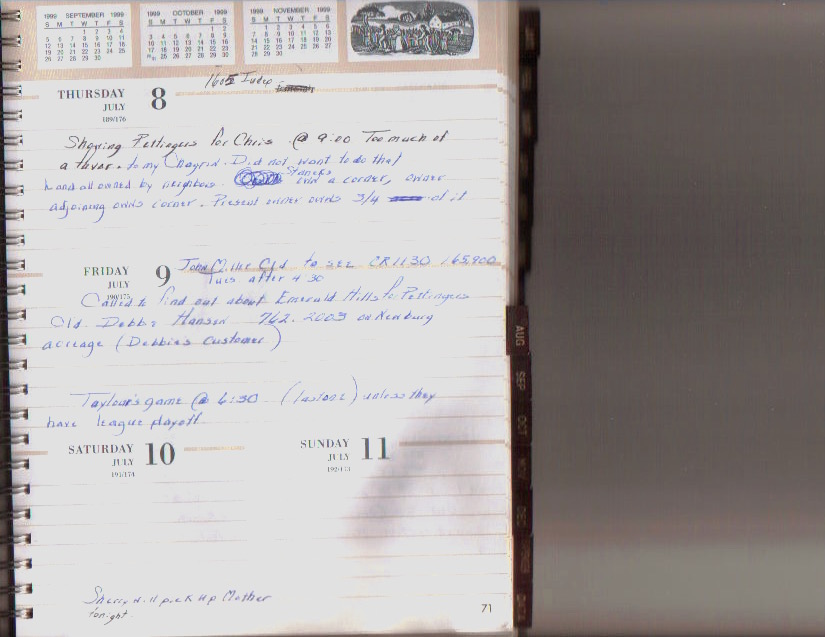 1999 SEPTEMBER 1999
S M T W T F S
1 2 3 4
5 6 7 8 9 10 11
12 13 14 15 16 17 18
19 20 21 22 23 24 25
26 27 28 29 30
1999 OCTOBER 1999
S M T W T F S
1 2
3 4 5 6 7 8 9
10 11 12 13 14 15 16
17 18 19 20 21 22 23
24/31 25 26 27 28 29 30
1999 NOVEMBER 1999
S M T W T F S
1 2 3 4 5 6
7 8 9 10 11 12 13
14 15 16 17 18 19 20
21 22 23 24 25 26 27
28 29 30
1605 Index
THURSDAY 8
JULY
189/176
Showing Pettingers for Chris @ 9:00 Too much of
a favor. to my Chagrin. Did not want to do that
Land all owned by neighbors. Stancks own a corner, owner
adjoining owns corner. Present owner owns 3/4 of it
John Miller Cld to see CR1130 165,900
FRIDAY 9 Tues after 4 30
JULY
190/175
Called to find out about Emerald Hills for Pettingers
Cld. Debby Hansen 762.2003 on Newburg
acreage (Debbie's Customer)
Taylour's game @ 6:30 (last one) unless they
have league playoff
SATURDAY 10
JULY
191/174
SUNDAY 11
JULY
192/173
Sherry will pick up Mother
tonight.
71
AUG
SEP
OCT
NOV
DEC
DATA